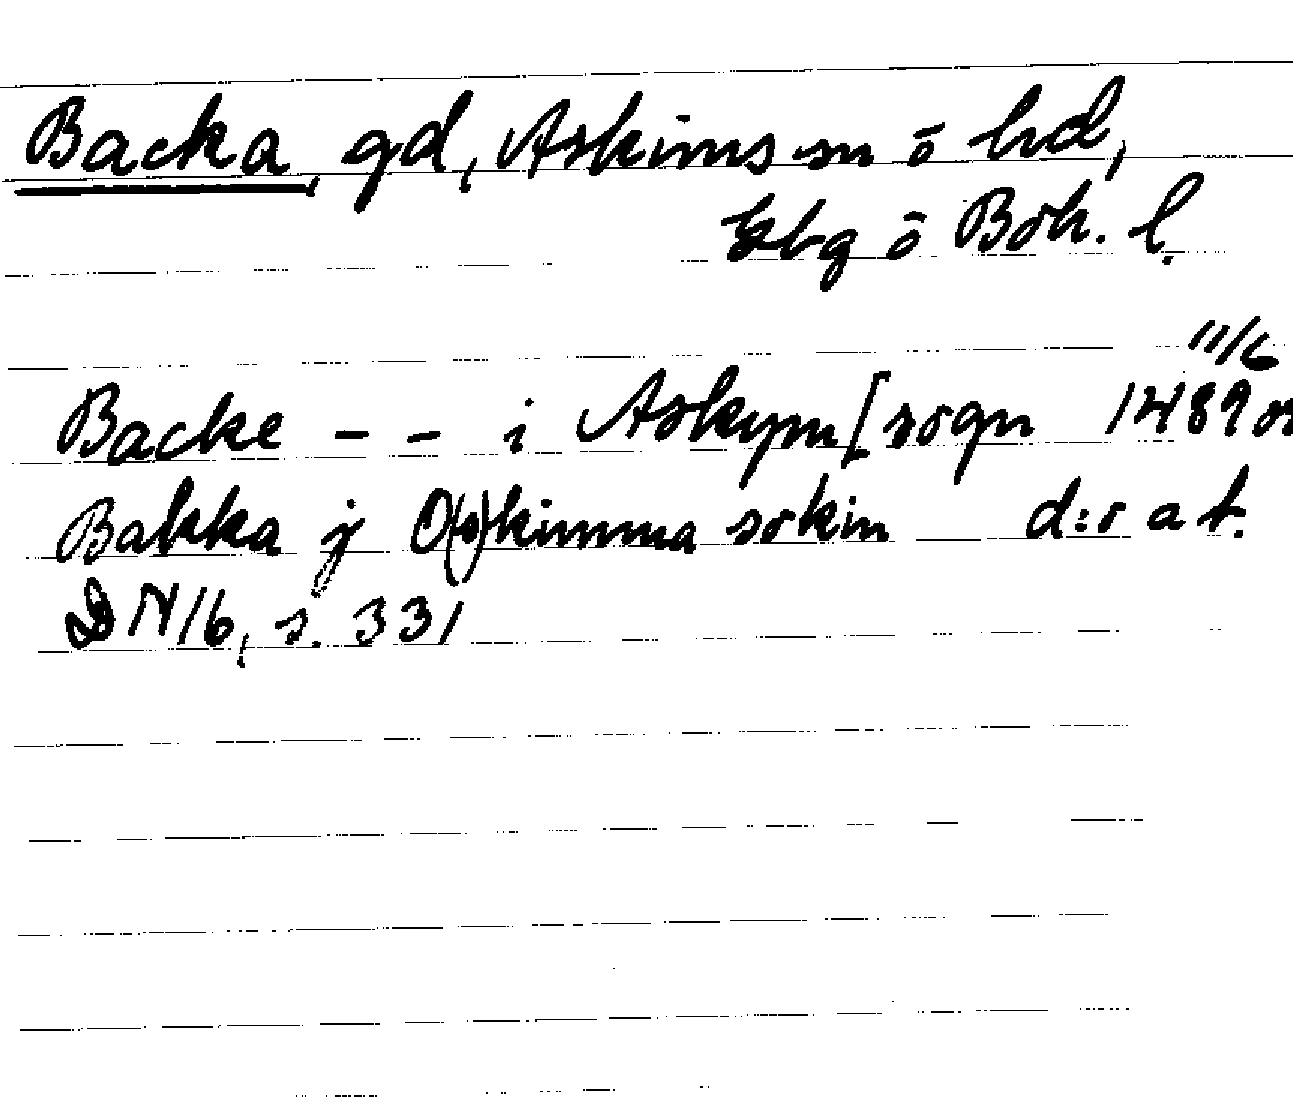 Backa, gd, Askims sn ō hd,
Gbg ō Boh. l.
11/6
Backe - - i Askym [sogn 1489 or
Bakka j O(s)kimma sokin d:o a t.
DN 16, s. 331